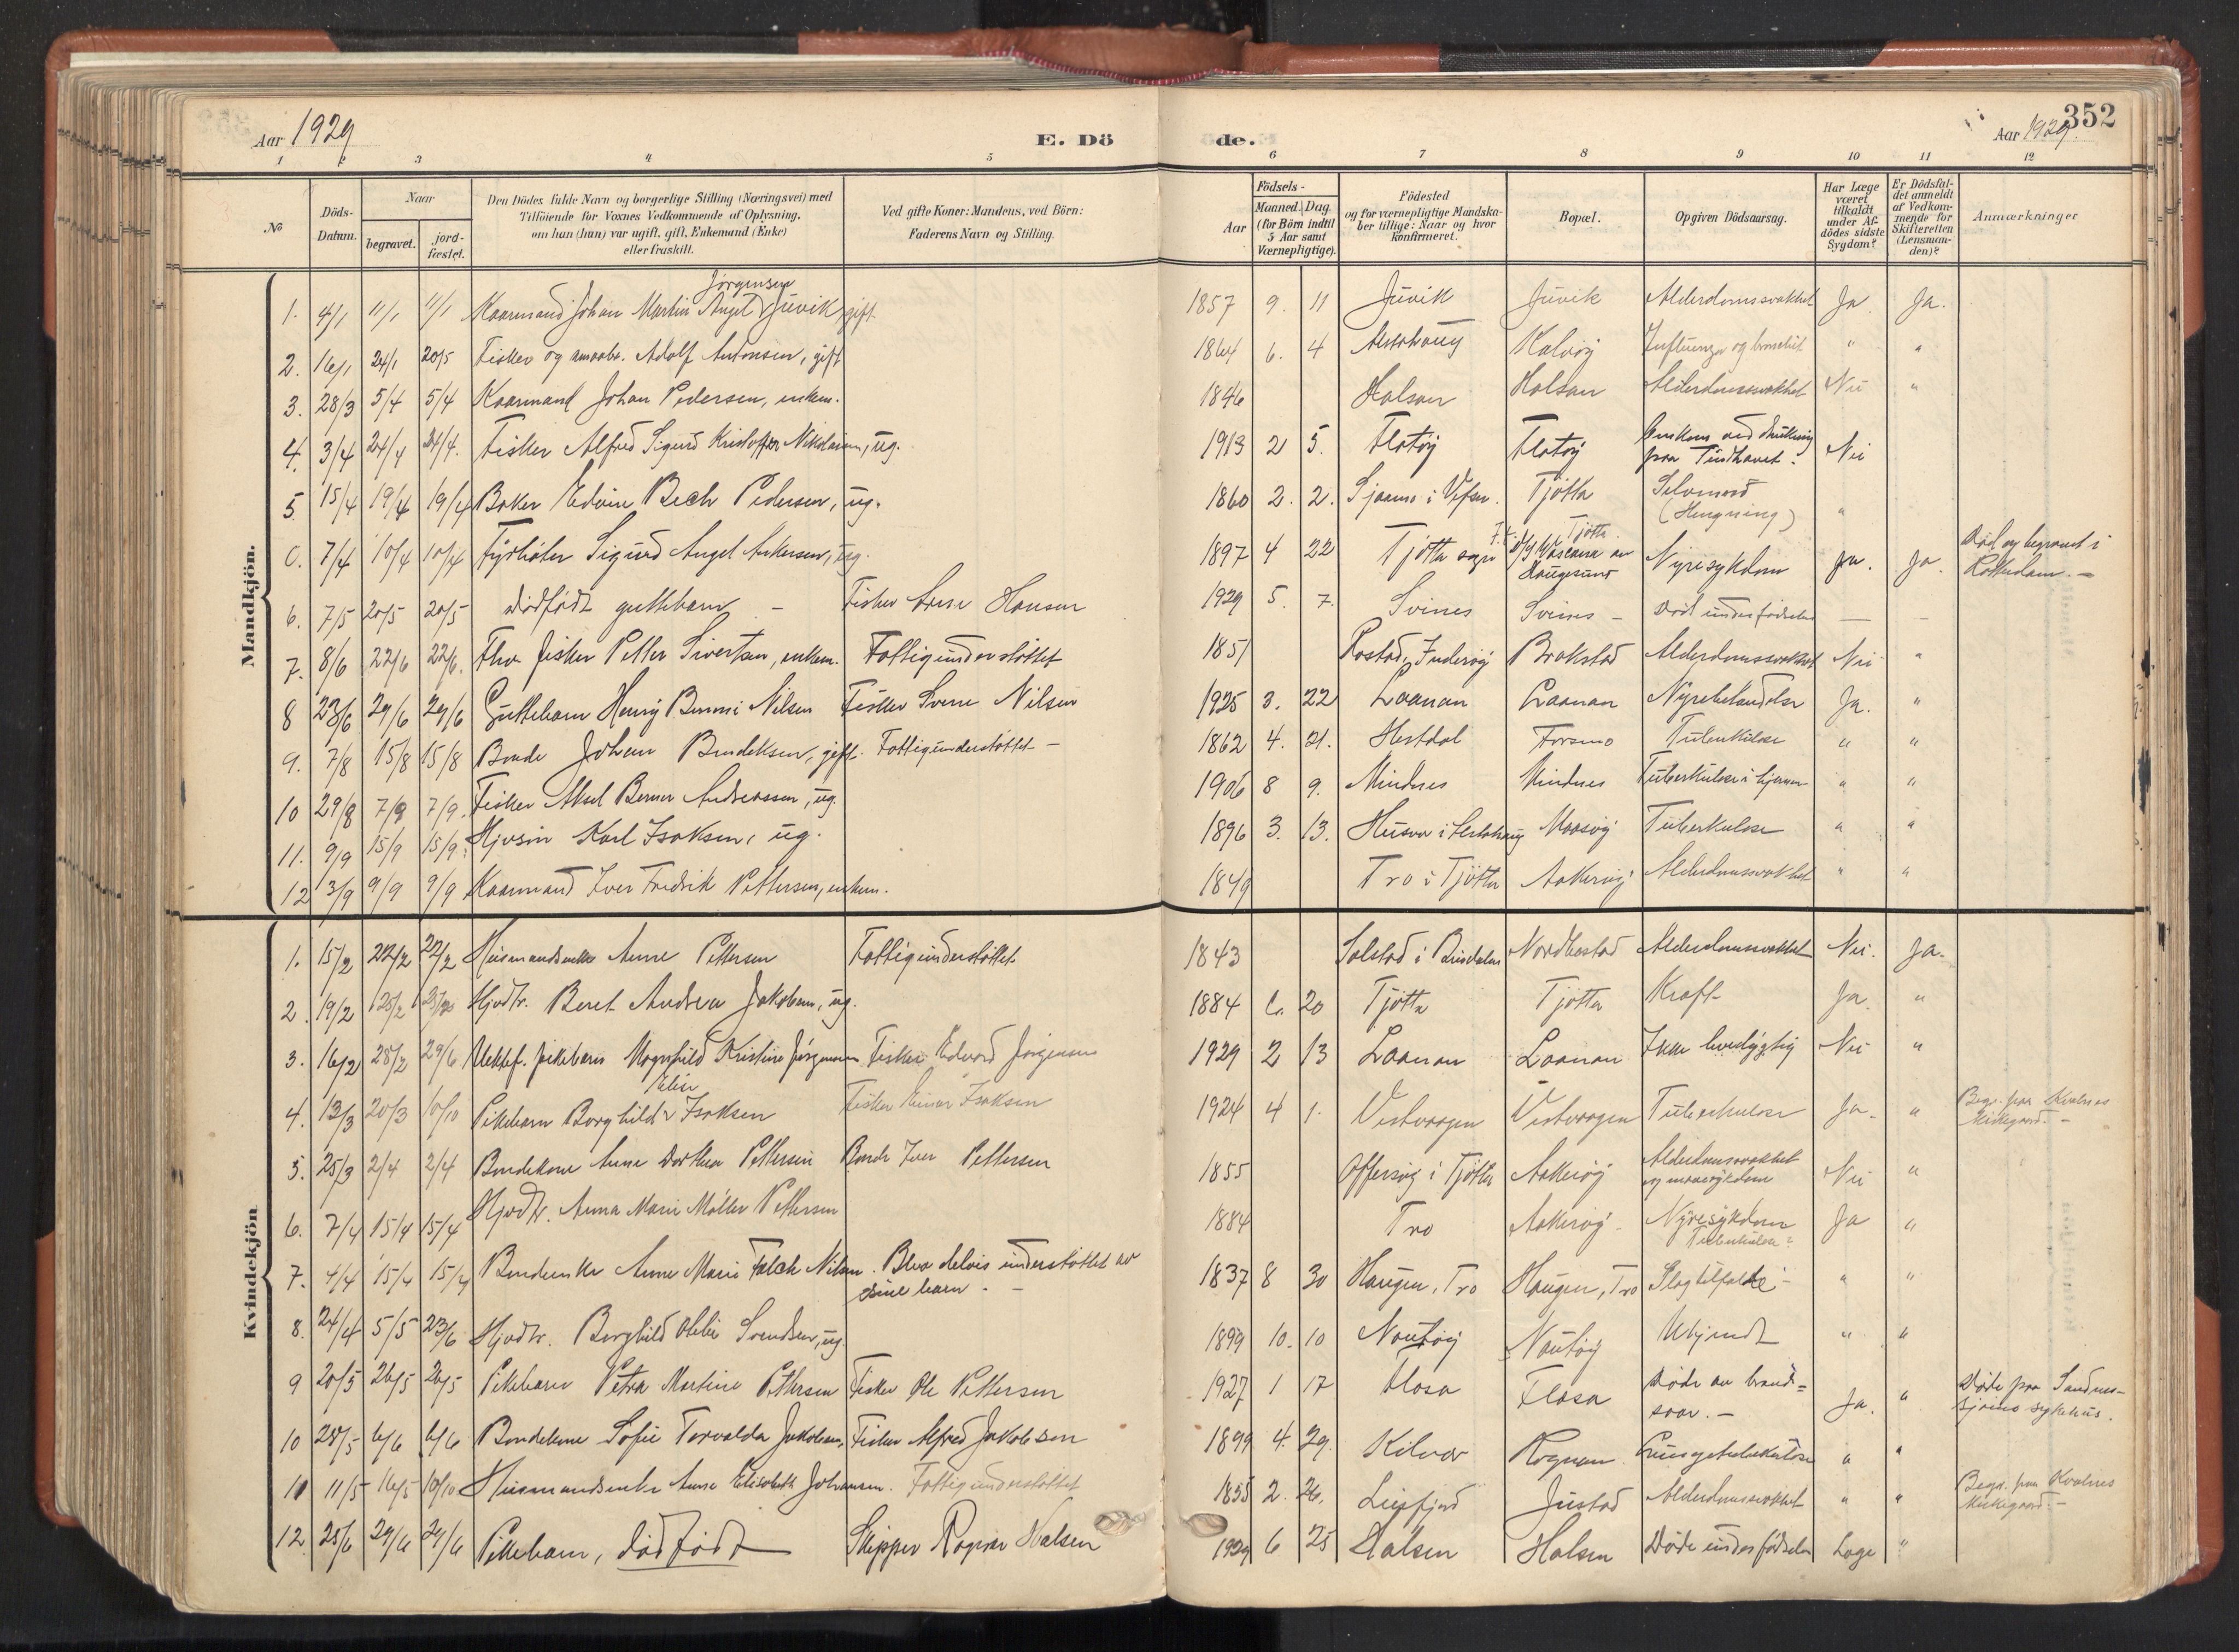 352
Aar 1929 E. Dö de. Aar 1929.
1 2 3 4 5 6 7 8 9 10 11 12
No
Döds-Datum.
Naar begravet. jord-fæstet.
Den Dödes fulde Navn og borgerlige Stilling (Næringsvei) med Tilföiende for Voxnes Vedkommende af Oplysning, om han (hun) var ugift, gift, Enkemand (Enke) eller fraskilt.
Ved gifte Koner: Mandens, ved Börn: Faderens Navn og Stilling.
Födsels-
Aar
Maaned. Dag (for Börn indtil 5 Aar samt Værnepligtige).
Födested og for værnepligtige Mandskaber tillige: Naar og hvor Konfirmeret.
Bopæl.
Opgiven Dödsaarsag.
Har Læge været tilkaldt under Afdödes sidste Sygdom?
Er Dödsfaldet anmeldt af Vedkommende for Skifteretten (Lensmanden)?
Anmærkninger
Mandkjön.
1. 4/1 11/1 11/1 Kaarmand Johan Martin Angel Jörgensen Juvik, gift. 1857 9. 11 Juvik Juvik Alderdomssvakhet Ja Ja.
2. 16/1 24/1 20/5 Fisker og Adolf Antonsen, gift 1864 6. 4 Alstahaug Kalvöy Influenza og bronchit " "
3. 28/3 5/4 5/4 Kaarmand Johan Pedersen, enkem. 1846 Halsan Halsan Alderdomssvakhet Nei "
4. 3/4 24/4 24/4. Fisker Alfred Sigurd Kristoffer Nikolaisen, ug. 1913 2 5. Flatöy Flatöy Omkom ved drukning paa Nei
5. 15/4 19/4 19/4 Baker Edvin Bech Pedersen, ug. 1860 2. 2. Sjaamo i Vefsn. Tjötta Selvmord (Hengning) "
0. 7/4 10/4 10/4 Fyrböter Sigurd Angel Ankersen, ug. 1897 4 22 Tjötta sogn Tjötta D/S av Haugesund Nyresykdom Ja. Ja. Död og begravet i Rotterdam. -
6. 7/5 20/5 20/5 Dödfödt guttebarn - Fisker Hansen 1929 5. 7. Svines Svines - Död under födselen — -
7. 8/6 22/6 22/6. Fhv. fisker Petter Sivertsen, enkem. Fattigunderstöttet 1851 Rostad, Inderöy Brakstad Alderdomssvakhet Nei "
8 23/6 29/6 29/6 Guttebarn Henry Bernni Nilsen Fisker Sverre Nilsen 1925 3. 22 Laanan Laanan Nyrebetendelse Ja. "
9. 7/8 15/8 15/8 Bonde Johan Bendiksen, gift. Fattigunderstöttet - 1862 4. 21. Hestdal Forsmo Tuberkulose " "
10 29/8 7/9 7/9. Fisker Aksel Berner Andreassen, ug. 1906 8 9. Mindnes Mindnes Tuberkulose i hjernen " "
11. 9/9 15/9 15/9. Hjvsön Karl Isaksen, ug. 1896 3. 13. Husvær i Alstahaug Maasöy Tuberkulose " "
12 3/9 9/9 9/9 Kaarmand Iver Fredrik Pettersen, enkem. 1849 Tro i Tjötta Aakeröy Alderdomssvakhet " "
Kvindekjön
1. 15/2 22/2 22/2 Husmandsenke Anne Pettersen Fattigunderstöttet. 1843 Solstad i Brönnöy Nordbostad Alderdomssvakhet Nei. Ja.
2. 19/2 25/2 Hjvdtr. Beret Andrea Jakobsen, ug. 1884 20 Tjötta Tjötta Kræft Ja. "
3. 16/2 28/2 29/6 Uektef. pikebarn Magnhild Kristine Jörgensen Fisker Edvard Jörgensen 1929 2 13 Laanan Laanan Ikke levedygtig Nei "
4. 13/3 20/3 10/10 Pikebarn Borghild Elise Isaksen Fisker Einar Isaksen 1924 4 1. Vistvaagen Vistvaagen Tuberkulose Ja. " Begr. paa Kvalnes kirkegaard. -
5. 25/3 2/4 2/4 Bondekone Anne Dorthea Pettersen Bonde Iver Pettersen 1855 Offersöy i Tjötta Aakeröy Alderdomssvakhet og mavesykdom Nei "
6. 7/4 15/4 15/4 Hjvdtr. Anna Marie Möller Pettersen 1884 Tro Aakeröy - Nyresykdom Tuberkulose? Ja "
7. 4/4 15/4 15/4 Bondeenke Anne Marie Falch Nilsen. Blev delvis understöttet av sine barn. - 1837 8 30 Haugen, Tro Haugen, Tro Slagtilfælde - " "
8. 24/4 5/5 23/6 Hjvdtr. Borghild Otelie Svendsen, ug. 1899 10. 10 Nautöy Nautöy Ukjendt " "
9 20/5 26/5 26/5 Pikebarn Petra Martine Pettersen Fisker Ole Pettersen 1927 1 17 Flosa Flosa Döde av brandsaar. - Ja. " Döde paa Sandnessjöens sykehus.
10 28/5 6/6 6/6 Bondekone Sofie Torvalda Jakobsen, Fisker Alfred Jakobsen 1899 4. 29. Kilvær Rognan Lungetuberkulose " "
11 11/5 16/5 10/10 Husmandsenke Anne Elisabeth Johansen. Fattigunderstöttet 1855 2. 26. Leirfjord Justad Alderdomssvakhet " " Begr. paa Kvalnes kirkegaard. -
12. 25/6 29/6 29/6 Pikebarn, dödfödt Skipper Ragnar Halsen 1929 6 25 Halsen Halsen Döde under födselen Læge "